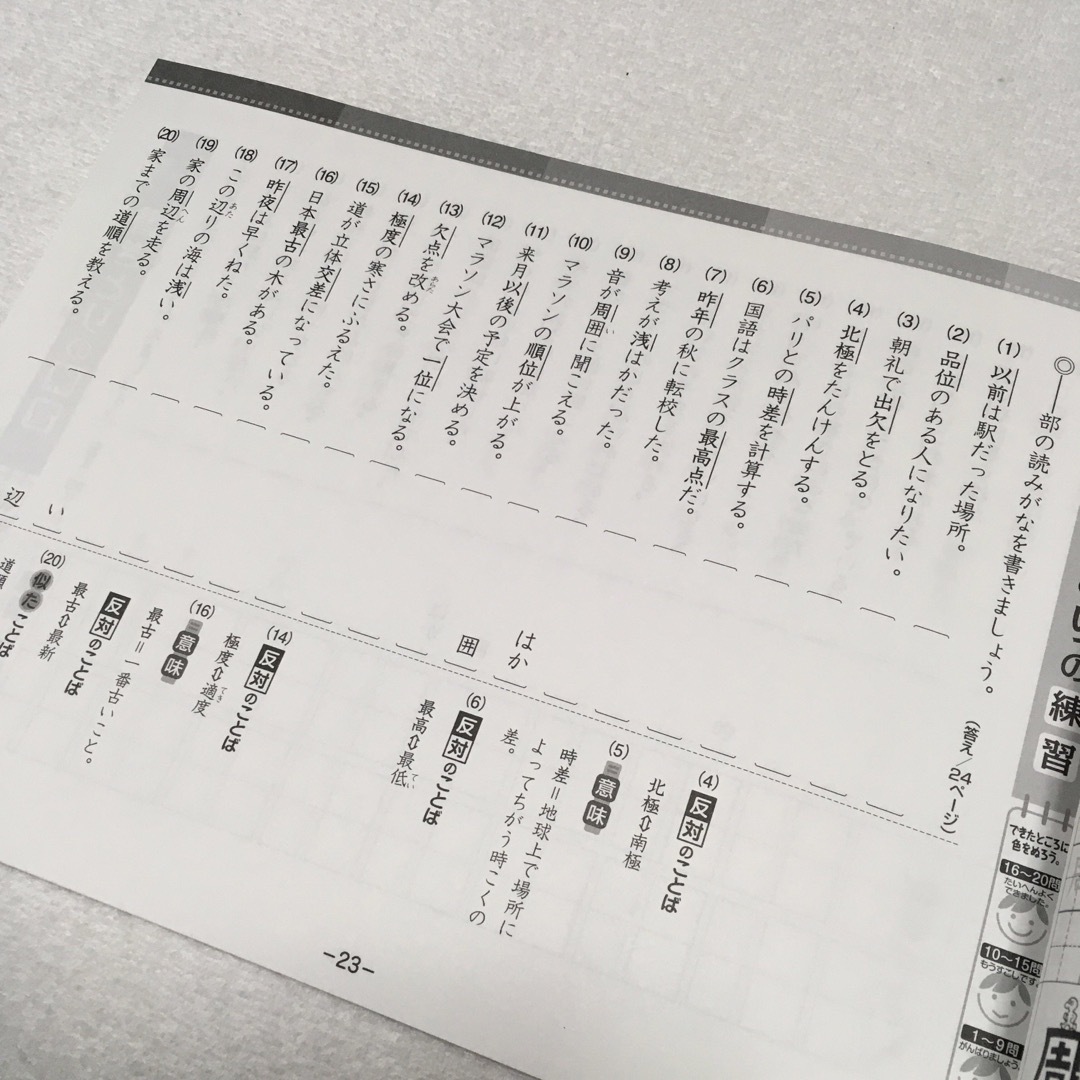 の練習
◎——部の読みがなを書きましょう。
(答え/24ページ)
(1) 以前は駅だった場所。
(2) 品位のある人になりたい。
(3) 朝礼で出欠をとる。
(4) 北極をたんけんする。
(5) パリとの時差を計算する。
(6) 国語はクラスの最高点だ。
(7) 昨年の秋に転校した。
(8) 考えが浅はかだった。
はか
(9) 音が周囲に聞こえる。
い
囲
(10) マラソンの順位が上がる。
(11) 来月以後の予定を決める。
(12) マラソン大会で一位になる。
(13) 欠点を改める。
あらた
(14) 極度の寒さにふるえた。
(15) 道が立体交差になっている。
(16) 日本最古の木がある。
(17) 昨夜は早くねた。
(18) この辺りの海は浅い。
あた
い
(19) 家の周辺を走る。
へん
辺
(20) 家までの道順を教える。
(4) 反対のことば
北極⇔南極
(5) 意味
時差=地球上で場所に
よってちがう時こくの
差。
(6) 反対のことば
最高⇔最低
てい
(14) 反対のことば
極度⇔適度
てき
(16) 意味
最古=一番古いこと。
反対のことば
最古⇔最新
(20) 似たことば
道順
できたところに
色をぬろう。
16〜20問
たいへんよく
できました。
10〜15問
もうすこしです。
1〜9問
がんばりましょう。
-23-